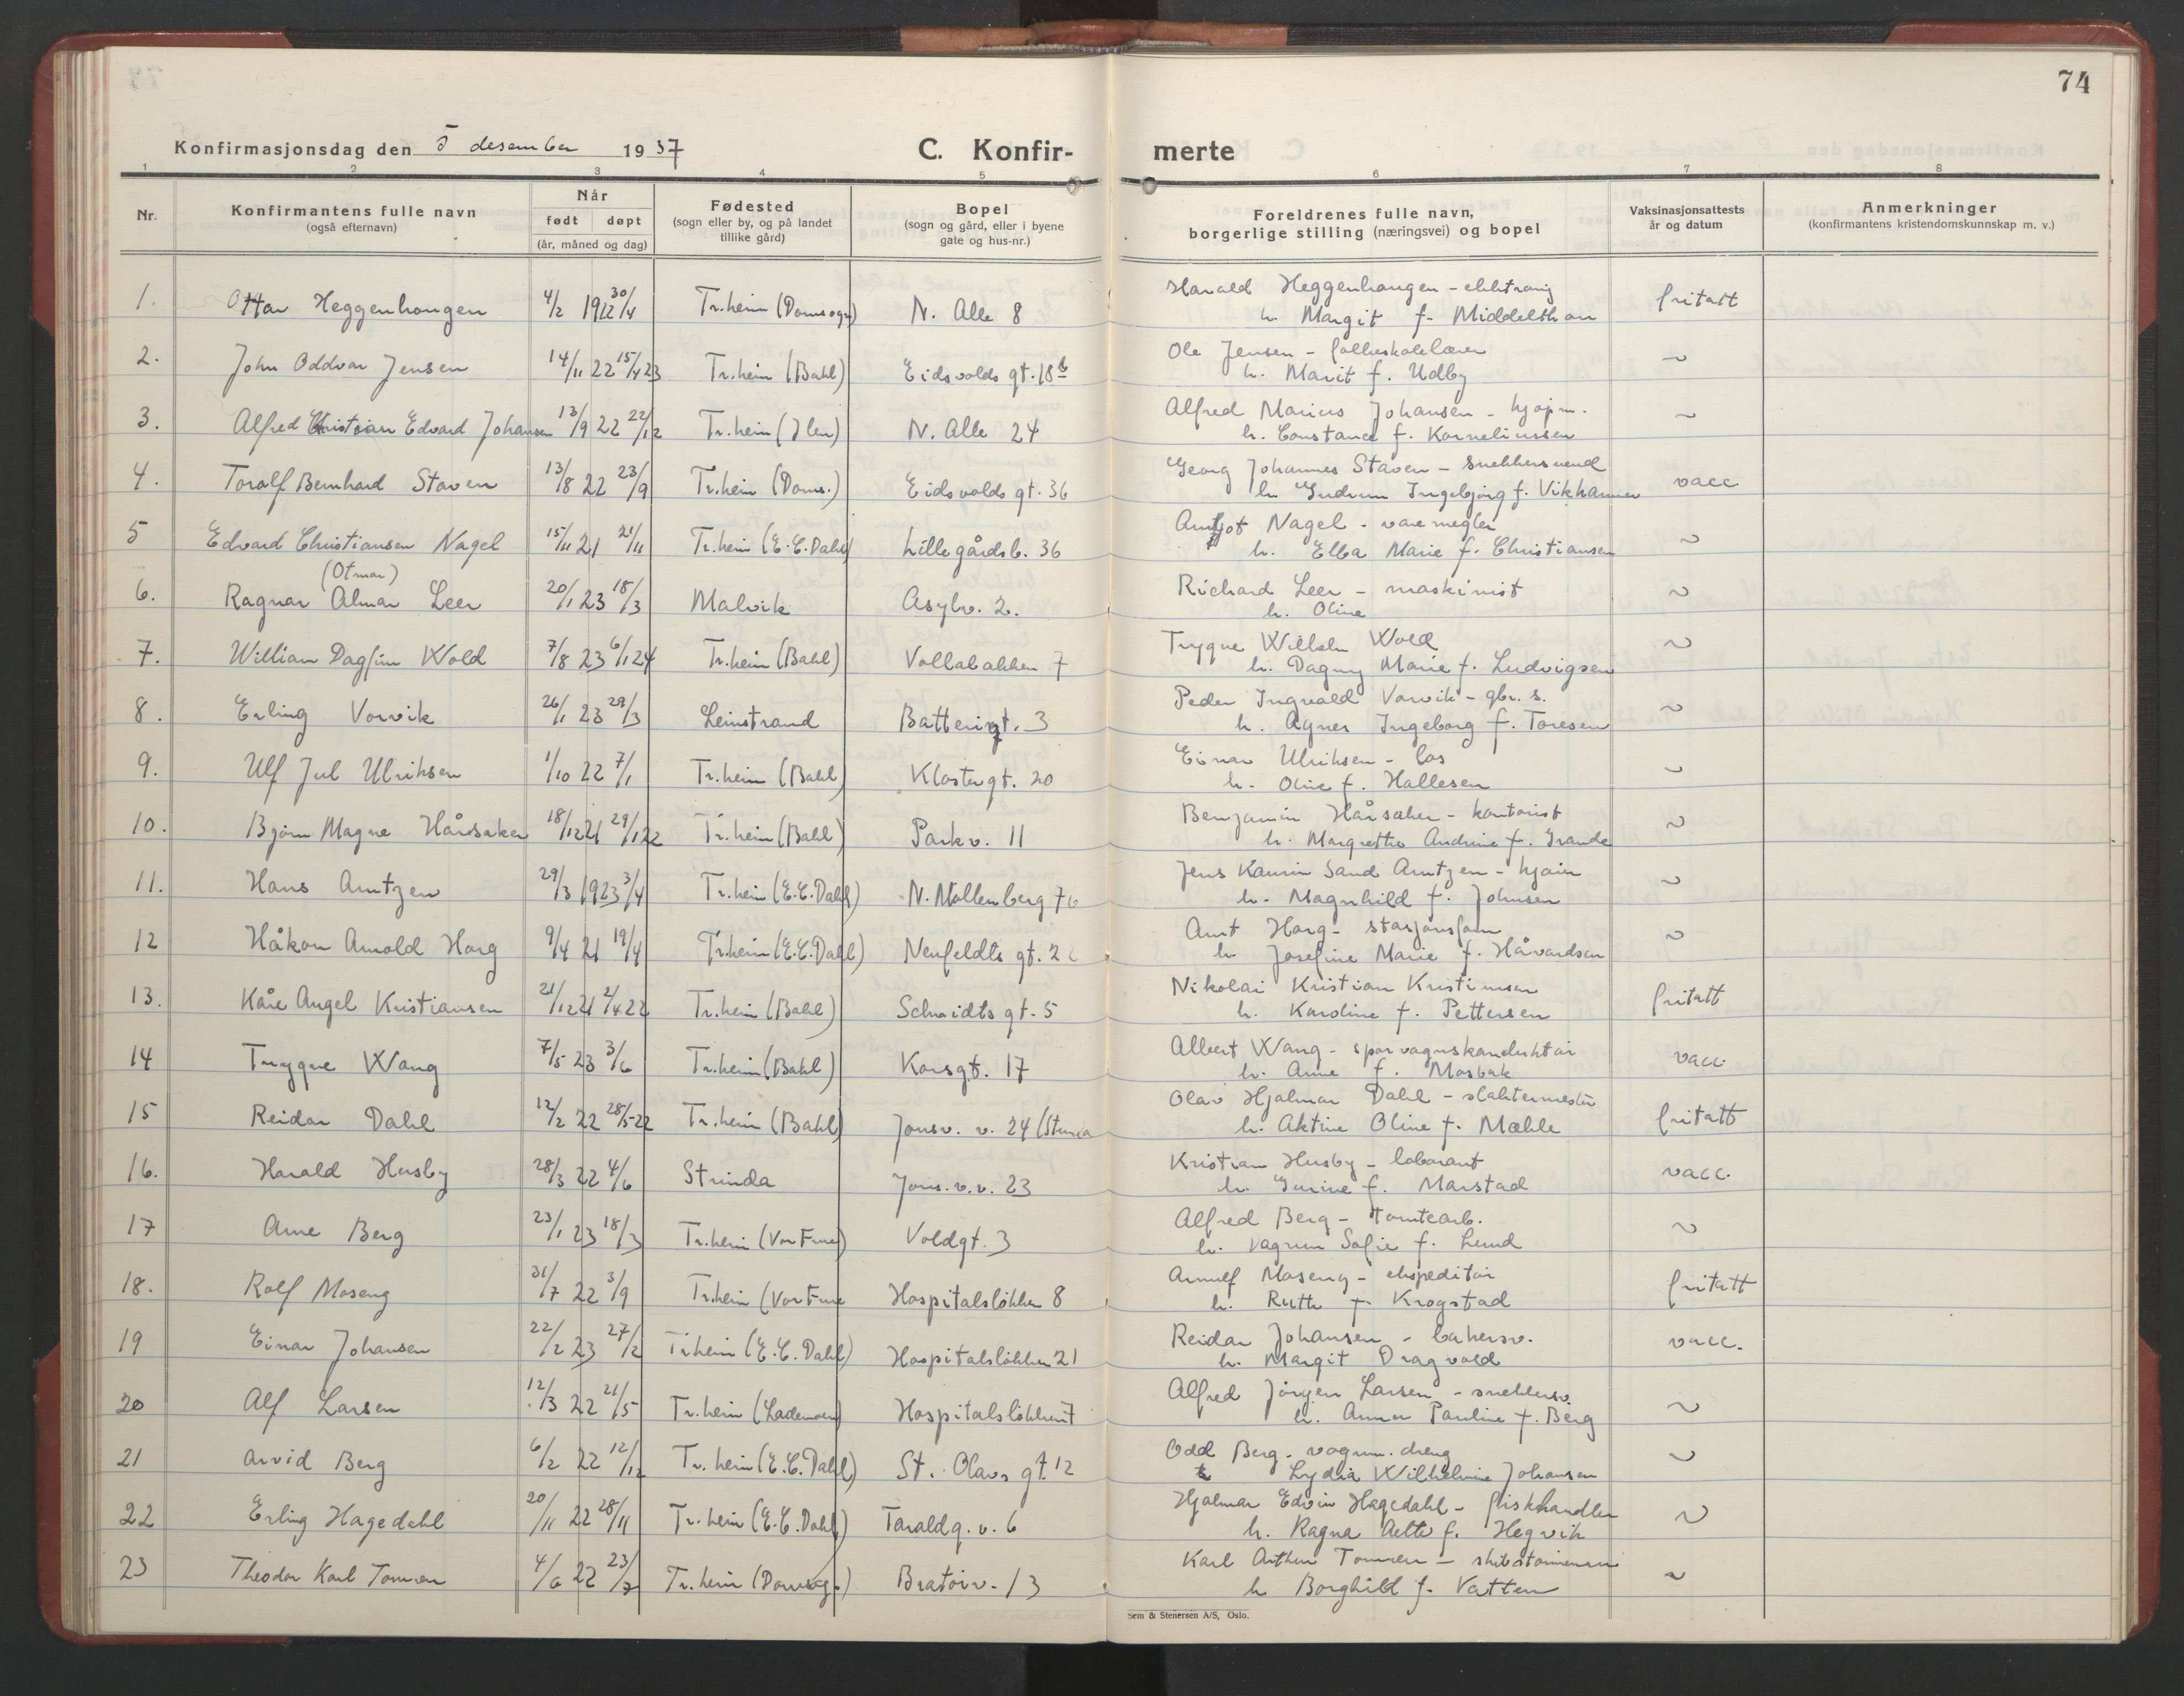 74
Konfirmasjonsdag den 5 desember 1937
C. Konfir- merte
1 2 3 4 5 6 7 8
Nr.
Konfirmantens fulle navn
(også efternavn)
Når
født døpt
(år, måned og dag)
Fødested
(sogn eller by, og på landet
tillike gård)
Bopel
(sogn og gård, eller i byene
gate og hus-nr.)
Foreldrenes fulle navn,
borgerlige stilling (næringsvei) og bopel
Vaksinasjonsattests
år og datum
Anmerkninger
(konfirmantens kristendomskunnskap m. v.)
1. Ottar Heggenhougen 4/2 1922 30/4 Tr.heim (Domsogn) N. Alle 8 Harald Heggenhaugen - fritatt
h. Margit f. Middelthon
2. John Oddvar Jensen 14/11 22 15/4 23 Tr.heim (Bakl) Eidsvolds gt. 18b Ole Jensen - folkeskolelærer ~
h. Marit f. Udby
3. Alfred Christian Edvard Johansen 13/9 22 22/12 Tr.heim (Ilen) N. Alle 24 Alfred Marius Johansen - kjøpm. ~
h. Constance f. Korneliussen
4. Toralf Bernhard Staven 13/8 22 23/9 Tr.heim (Doms.) Eidsvolds gt. 36 Georg Johannes Staven - snekkersvend vacc
h. Gudrun Ingebjørg f. Vikhammer
5 Edvard Christiansen Nagel 15/11 21 21/11 Tr.heim (E.C.Dahl) Lillegårdsb. 36 Arnljot Nagel - varemegler ~
h. Elba Marie f. Christiansen
(Otmar)
6. Ragnar Almar Leer 20/1 23 18/3 Malvik Asylv. 2. Richard Leer - maskinist ~
h. Oline
7. William Dagfinn Wold 7/8 23 6/1 24 Tr.heim (Bakl) Vollabakken 7 Trygve Wilhelm Wold ~
h. Dagny Marie f. Ludvigsen
8. Erling Vorvik 26/1 23 29/3 Leinstrand Batterigt. 3 Peder Ingvald Vorvik - gbr. s. ~
h. Agnes Ingeborg f. Toresen
9. Ulf Jul Ulriksen 1/10 22 7/1 Tr.heim (Bakl) Klostergt. 20 Einar Ulriksen - los ~
h. Oline f. Hallesen
10. Bjørn Magne Hårsaker 18/12 21 29/1 22 Tr.heim (Bakl) Parkv. 11 Benjamin Hårsaker - kontorist ~
h. Margrethe Andrine f. Grande
11. Hans Arntzen 29/3 1923 3/4 Tr.heim (E.C.Dahl) N. Møllenberg 7 Jens Kaurin Sand Arntzen - ~
h. Magnhild f. Johnsen
12 Håkon Arnold Horg 9/4 21 19/4 Tr.heim (E.C.Dahl) Neufeldts gt. 2 Arnt Horg - stasjonsform ~
h. Josefine Marie f. Håvardsen
13. Kåre Angel Kristiansen 21/12 21 2/4 22 Tr.heim (Bakl) Schmidts gt. 5 Nikolai Kristian Kristiansen fritatt
h. Karoline f. Pettersen
14 Trygve Wang 7/5 23 3/6 Tr.heim (Bakl) Korsgt. 17 Albert Wang - sporvognskonduktør vacc
h. Anne f. Mosbak
15 Reidar Dahl 12/2 22 28/5-22 Tr.heim (Bakl) Jonsv. v. 24 (Strinda Olav Hjalmar Dahl - slaktermester fritatt
h. Aktine Oline f. Mæhle
16. Harald Husby 28/3 22 4/6 Strinda Jons. v. v. 23 Kristian Husby - laborant vacc.
h. Gurine f. Marstad
17 Arne Berg 23/1 23 18/3 Tr.heim (Vor Frue) Voldgt. 3 Alfred Berg - tomtearb. ~
h. Vagnun Sofie f. Lund
18. Rolf Moseng 31/7 22 3/9 Tr.heim (Vor Frue Hospitalsløkken 8 Arnulf Moseng - ekspeditør fritatt
h. Ruth f. Krogstad
19 Einar Johansen 22/2 23 27/2 Tr.heim (E.C.Dahl) Hospitalsløkken 21 Reidar Johansen - bakersv. vacc.
h. Margit Dragvold
20 Alf Larsen 12/3 22 21/5 Tr.heim (Lademoen) Hospitalsløkken 7 Alfred Jørgen Larsen - snekkersv. ~
h. Anna Pauline f. Berg
21 Arvid Berg 6/2 22 12/12 Tr.heim (E.C.Dahl) St. Olavs gt. 12 Odd Berg - vognm. dreng ~
h Lydia Wilhelmine Johansen
22 Erling Hagedahl 20/11 22 28/11 Tr.heim (E.C.Dahl) Taraldg. v. 6 Hjalmar Edvin Hagedahl - fiskhandler ~
h. Ragna f. Hegvik
23 Theodor Karl Tonnen 4/6 22 23/7 Tr.heim (Domsog.) Bratørv. 13 Karl Arthur Tonnen - ~
h Borghild f. Vatten
Sem & Stenersen A/S, Oslo.